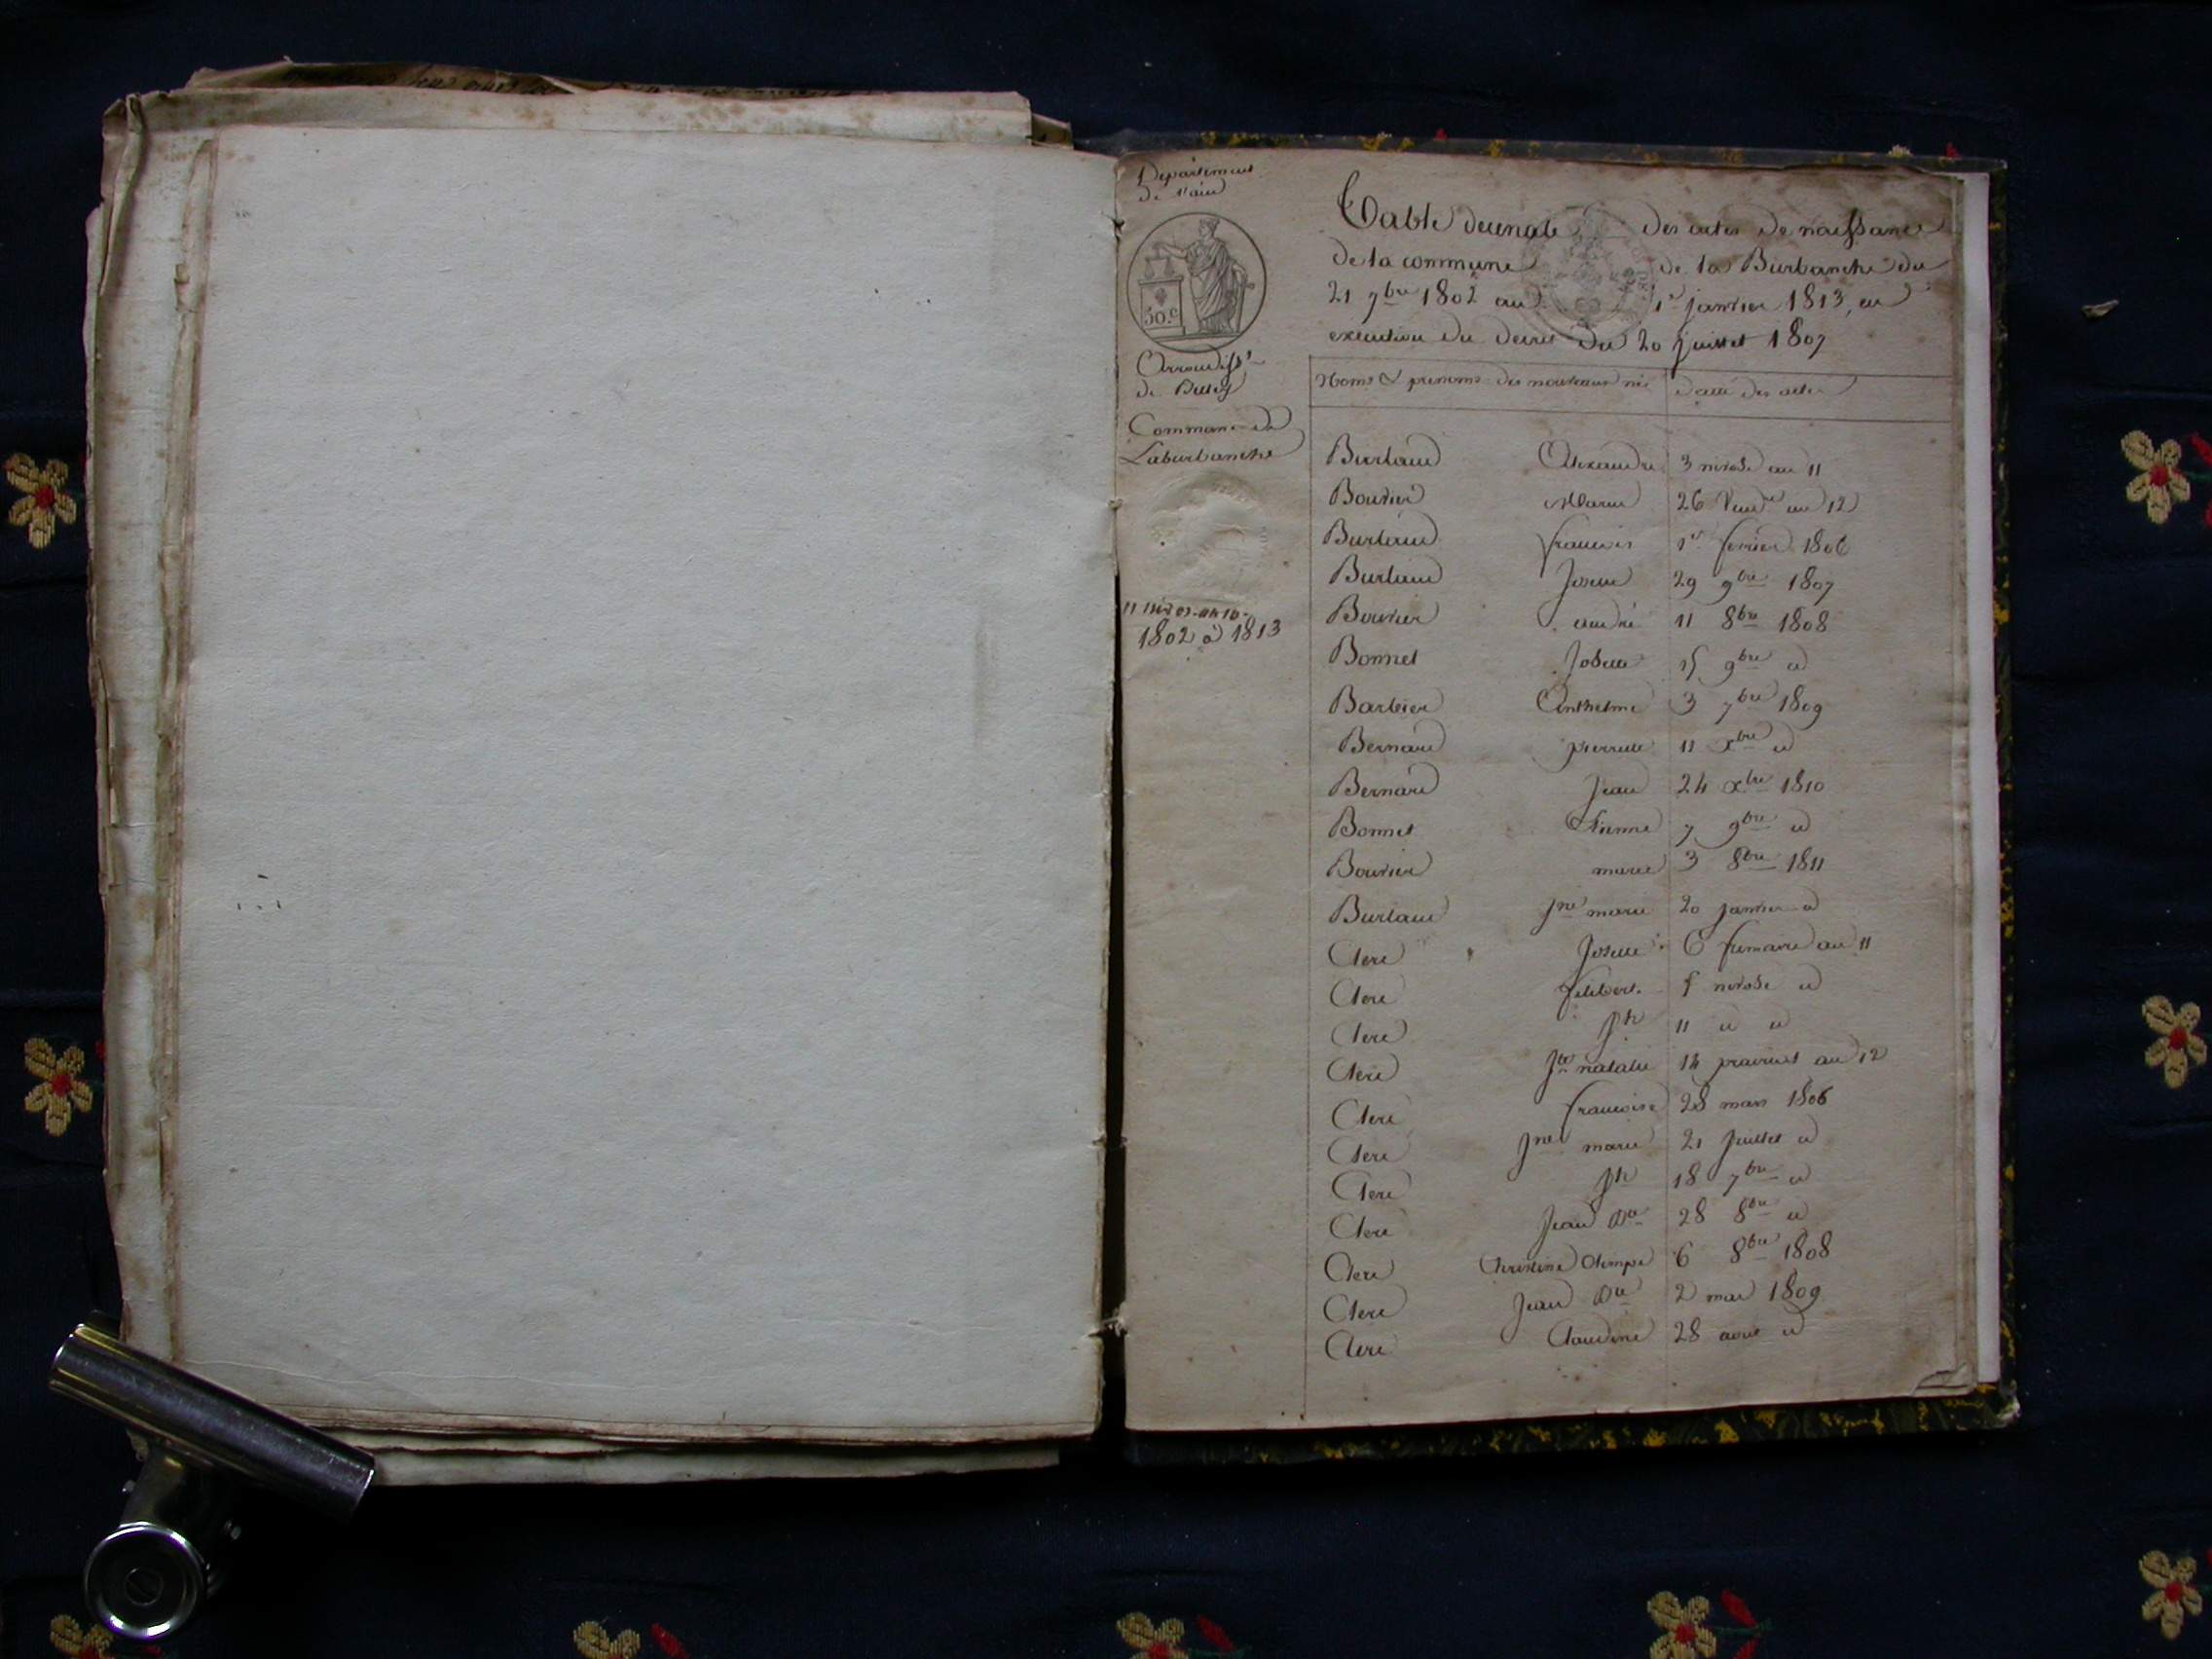 Département
de l'ain
50.c
Arrondisst
de Belley
Commune de
Laburbanche
1802 à 1813
Table decenale des actes de naissance
de la commune de la Burbanche du
21 7bre 1802 au 1er janvier 1813, en
execution du decret du 20 juillet 1807
Noms & prenoms des nouveaux nés date des actes
Burlaud Alexandre 3 nivose an 11
Bouvier Marie 26 Vendre an 12
Burlaud francois 1er fevrier 1806
Burlaud Josette 29 9bre 1807
Bouvier andré 11 8bre 1808
Bonnet Josette 15 9bre id
Barbier Anthelme 3 7bre 1809
Bernard pierrette 11 xbre id
Bernard Jean 24 xbre 1810
Bonnet Etienne 7 9bre id
Bouvier marie 3 8bre 1811
Burlaud Jne marie 20 janvier id
Clerc Josette 6 frimaire an 11
Clerc filibert 5 nivose id
Clerc Jh 11 id id
Clerc natalie 14 prairial an 12
Clerc francoise 28 mars 1806
Clerc Jne marie 21 Juillet id
Clerc Jh 18 7bre id
Clerc Jean Bte 28 8bre id
Clerc Christine Olimpe 6 8bre 1808
Clerc Jean Bte 2 mai 1809
Clerc Claudine 28 aout id